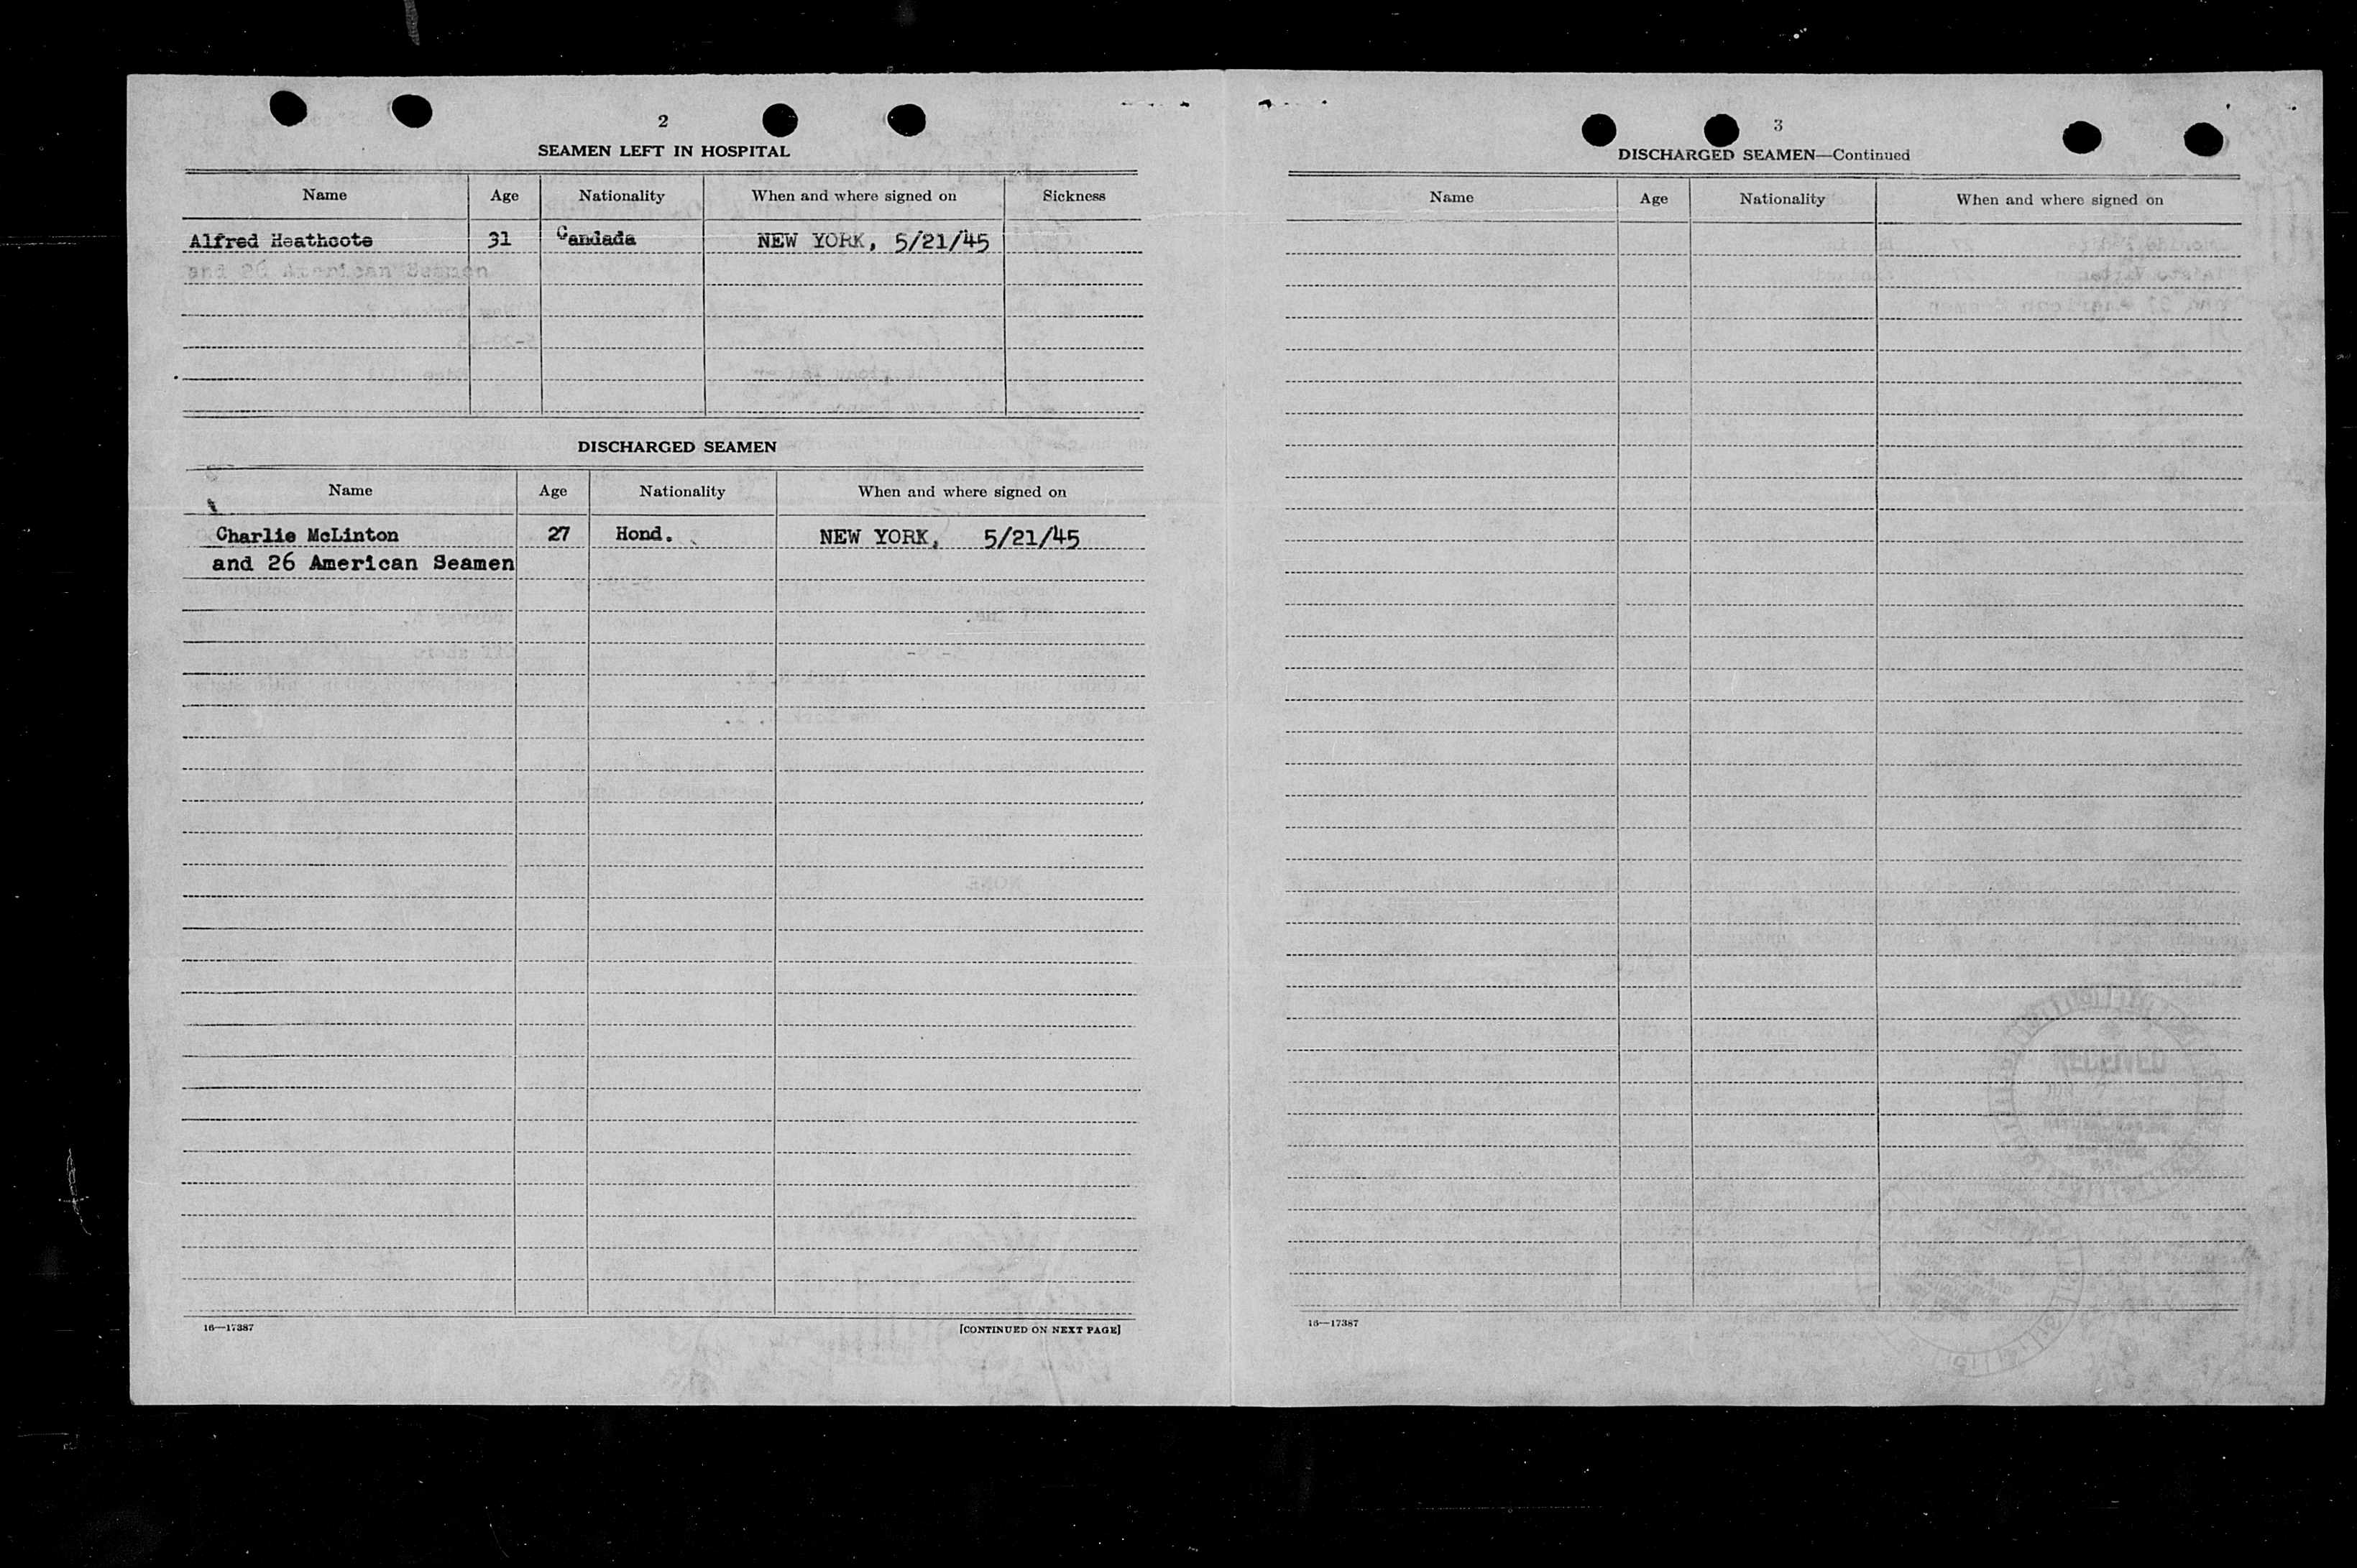 2
SEAMEN LEFT IN HOSPITAL
Name Age Nationality When and where signed on Sickness
Alfred Heathcote 31 Candada NEW YORK, 5/21/45
and 26 American Seamen
DISCHARGED SEAMEN
Name Age Nationality When and where signed on
Charlie McLinton 27 Hond. NEW YORK, 5/21/45
and 26 American Seamen
16—17387 [CONTINUED ON NEXT PAGE]
3
DISCHARGED SEAMEN—Continued
Name Age Nationality When and where signed on
RECEIVED
16—17387